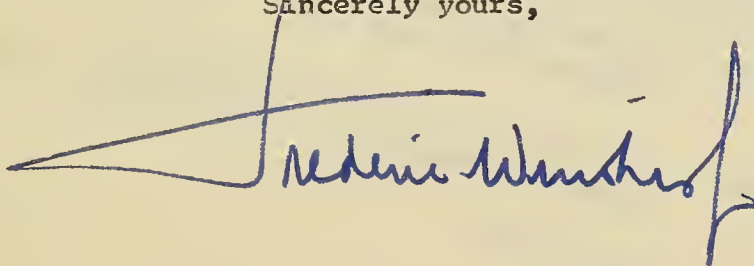 Sincerely yours,
Frederic Winship